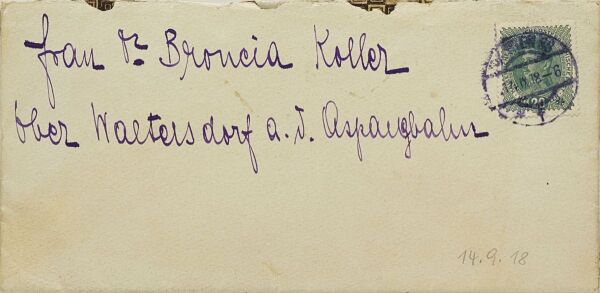 Frau Dr Broncia Koller
Ober Waltersdorf a. d. Aspangbahn
20
14.9.18